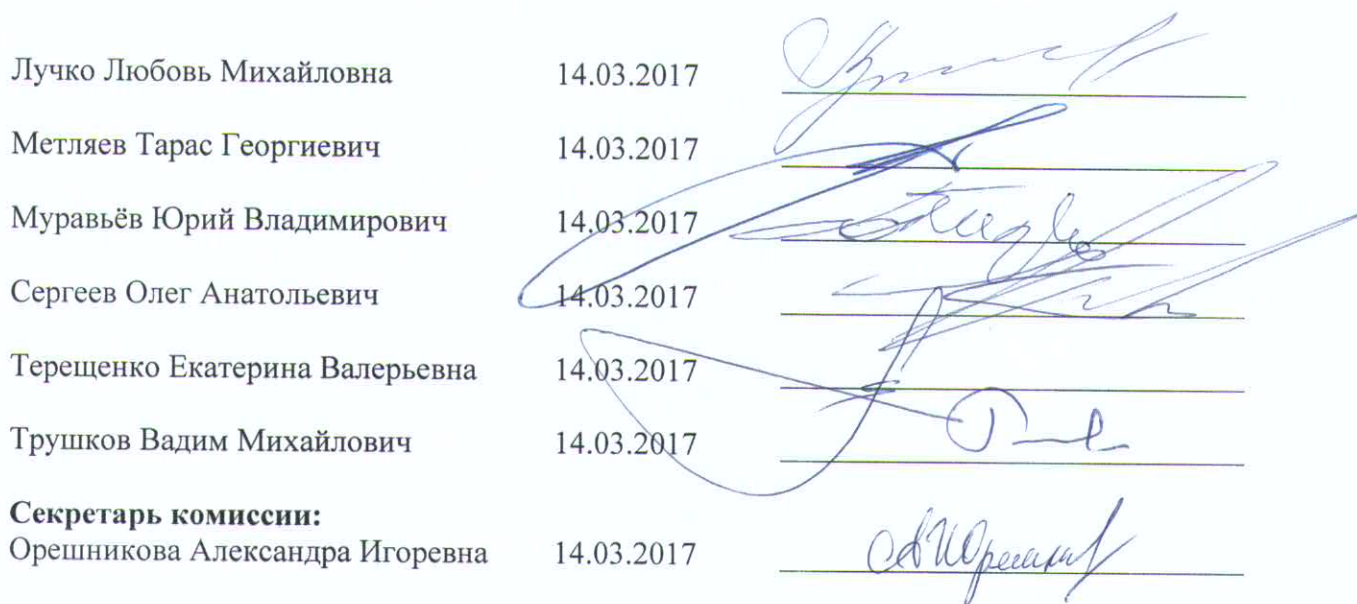 Лучко Любовь Михайловна 14.03.2017
Метляев Тарас Георгиевич 14.03.2017
Муравьёв Юрий Владимирович 14.03.2017
Сергеев Олег Анатольевич 14.03.2017
Терещенко Екатерина Валерьевна 14.03.2017
Трушков Вадим Михайлович 14.03.2017
Секретарь комиссии:
Орешникова Александра Игоревна 14.03.2017